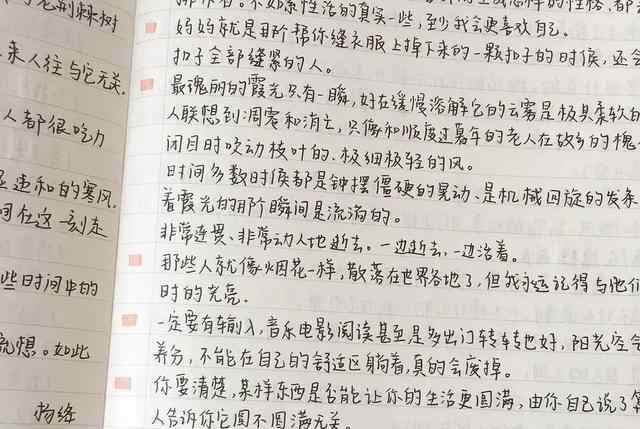 老荆棘树
来人往与它无关.
人都很吃力
违和的寒风.
在这一刻走
些时间中的
想。如此
杨绛
不如索性活的真实一些,到少我会更喜欢自己.
妈妈就是那个帮你缝衣服上掉下来的一颗扣子的时候,还会
扣子全部缝紧的人。
最瑰丽的霞光只有一瞬,好在缓慢溶解它的云雾是极具柔软的
人联想到凋零和消亡,只像和顺度过暮年的老人在故乡的槐
闭目时吹动枝叶的、极细极轻的风。
时间多数时候都是钟摆僵硬的晃动、是机械回旋的发条
着霞光的那个瞬间是流淌的。
非常连贯、非常动人地逝去。一边逝去,一边活着。
那些人就像烟花一样,散落在世界各地了,但我永远记得与他们
时的光亮.
一定要有输入,音乐电影阅读甚至是多出门转转也好,阳光空
养分,不能在自己的舒适区躺着,真的会废掉。
你要清楚,某样东西是否能让你的生活更圆满,由你自己说了算
人告诉你它圆不圆满无关。